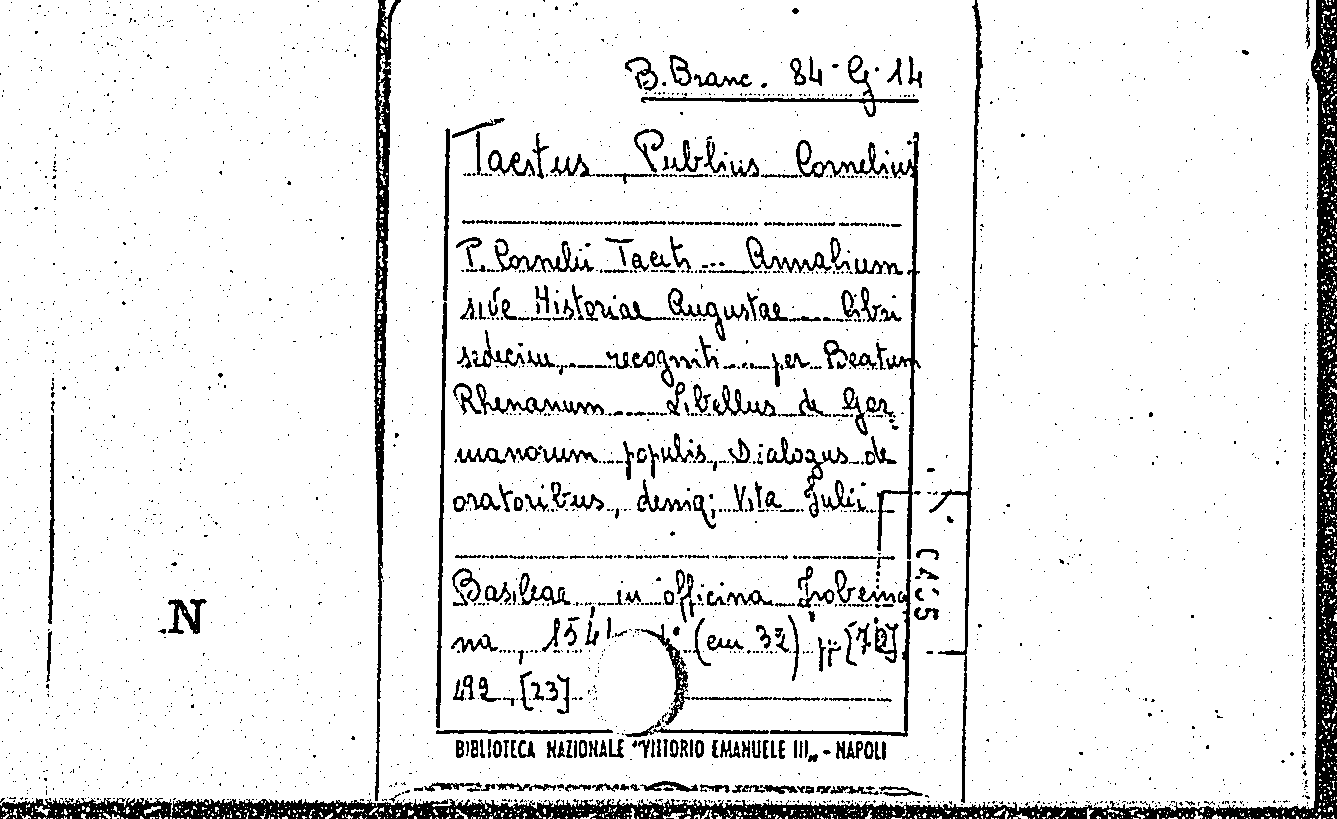 B. Branc. 84-G-14
Tacitus, Publius Cornelius
P. Cornelii Taciti ... Annalium
sive Historiae Augustae ... libri
sedecim, recogniti ... per Beatum
Rhenanum ... Libellus de Ger-
manorum populis, Dialogus de
oratoribus, deniq; Vita Julii
Basileae, in officina Frobenia
na, 154 (cm 32) pp [72]
492, [23]
BIBLIOTECA NAZIONALE "VITTORIO EMANUELE III„ - NAPOLI
N